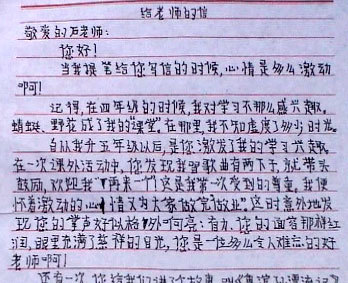 给老师的信
敬爱的石老师:
您好!
当我提笔给您写信的时候,心情是多么激动
啊!
记得,在四年级的时候,我对学习不那么感兴趣。
蜻蜓、野花成了我的“课堂”。在那里,我不知虚度了多少时光。
自从我升五年级以后,是您激发了我的学习兴趣。
在一次课外活动中,您发现我唱歌曲有两下子,就带头
鼓励,欢迎我“再来一个”这是我第一次受到的尊重。我便
怀着激动的心情又为大家做完做业”。这时意外地发
现您的掌声好似格外响亮:有力,您的面容那样红
润,眼里充满了慈祥的目光,您是一位多么令人难忘的好
老师啊!
还有一次,您给我们讲了故事